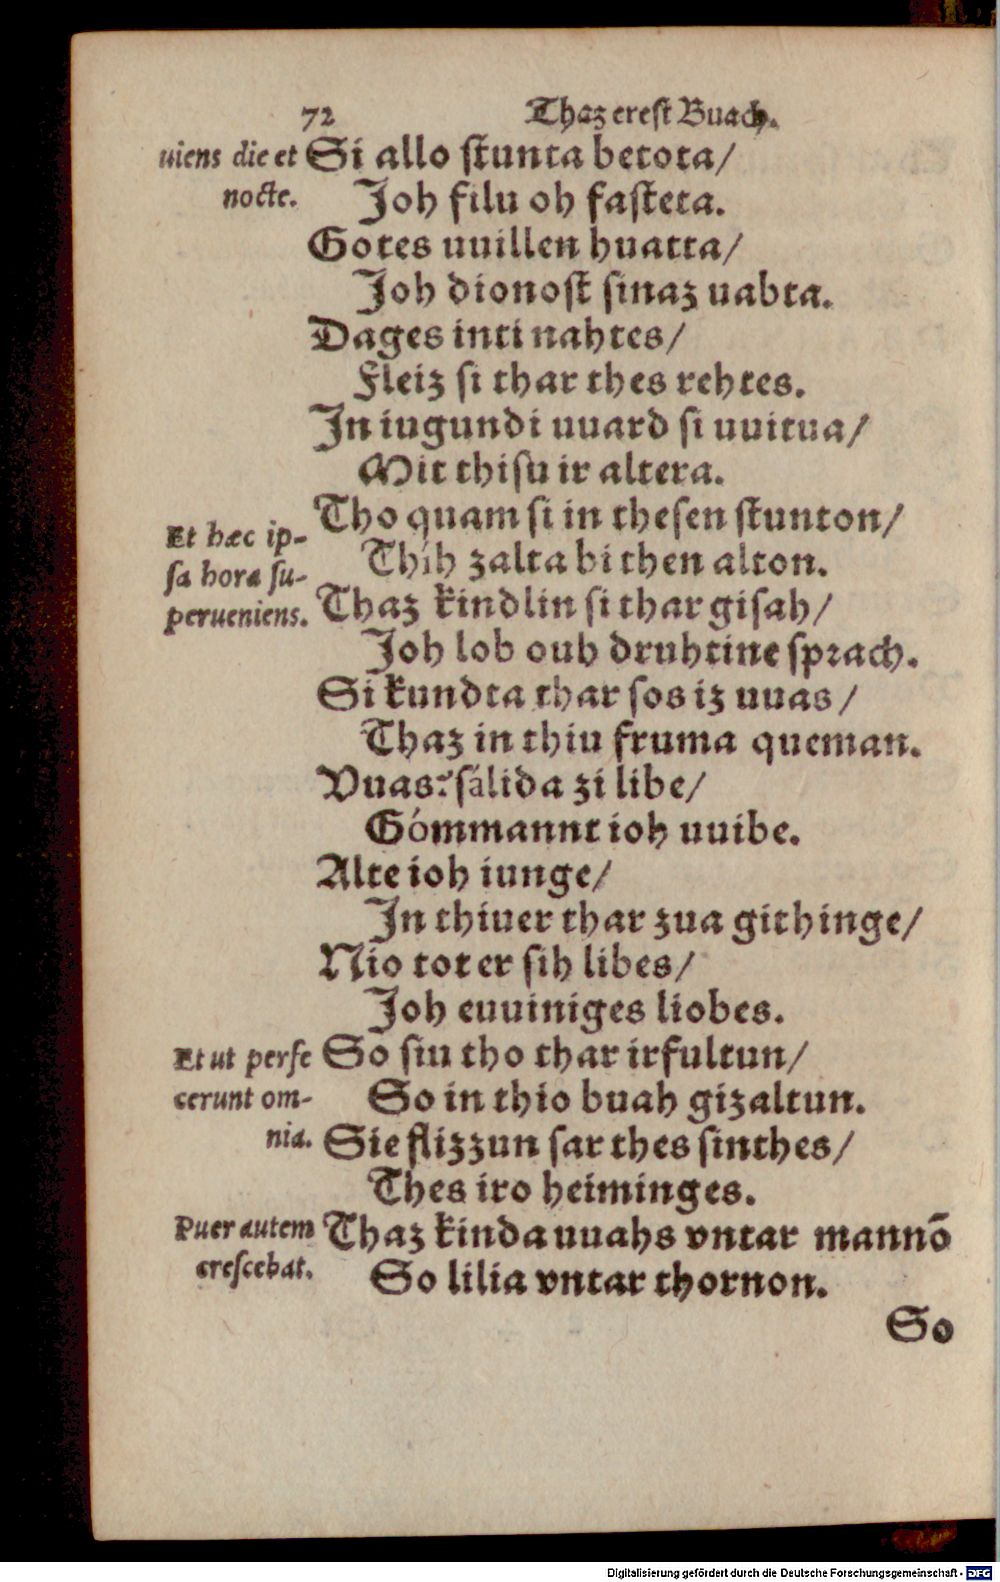 72 Thaz erest Buach.
uiens die et Si allo stunta betota/
nocte. Joh filu oh fasteta.
Gotes uuillen huatta/
Joh dionost sinaz uabta.
Dages inti nahtes/
Fleiz si thar thes rehtes.
Jn iugundi uuard si uuitua/
Mit thisu ir altera.
Tho quam si in thesen stunton/
Et hæc ip-
Thíh zalta bi then alton.
sa hora su-
Thaz kindlin si thar gisah/
perueniens.
Joh lob ouh druhtine sprach.
Si kundta thar sos iz uuas/
Thaz in thiu fruma queman.
Vuas sálida zi libe/
Gómmannt ioh uuibe.
Alte ioh iunge/
Jn thiuer thar zua githinge/
Nio tot er sih libes/
Joh euuiniges liobes.
Et ut perfe So siu tho thar irfultun/
cerunt om- So in thio buah gizaltun.
nia. Sie flizzun sar thes sinthes/
Thes iro heiminges.
Puer autem Thaz kinda uuahs vntar mannō
crescebat. So lilia vntar thornon.
So
Digitalisierung gefördert durch die Deutsche Forschungsgemeinschaft - DFG